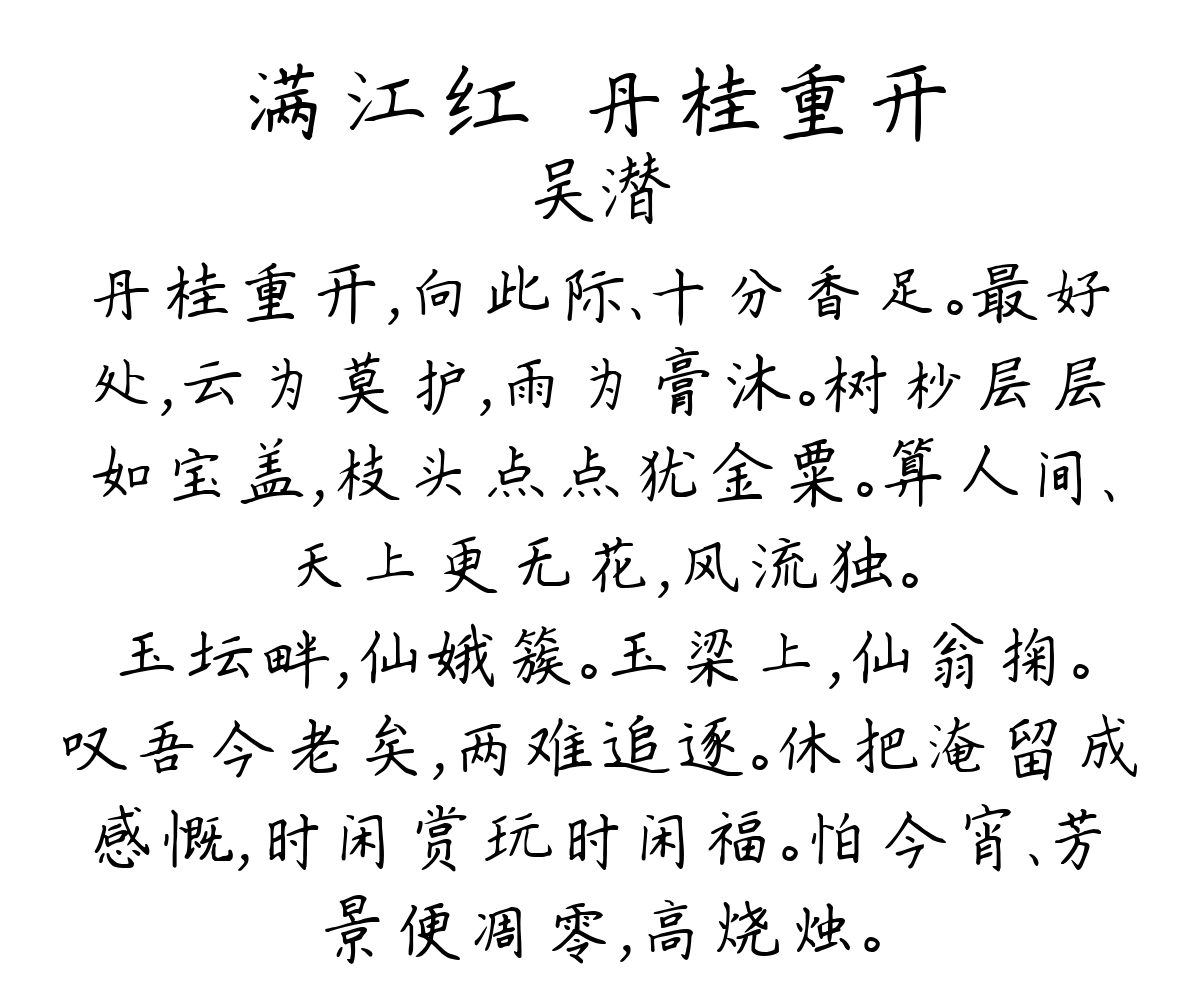 满江红 丹桂重开
吴潜
丹桂重开,向此际、十分香足。最好
处,云为莫护,雨为膏沐。树杪层层
如宝盖,枝头点点犹金粟。算人间、
天上更无花,风流独。
玉坛畔,仙娥簇。玉梁上,仙翁掬。
叹吾今老矣,两难追逐。休把淹留成
感慨,时闲赏玩时闲福。怕今宵、芳
景便凋零,高烧烛。